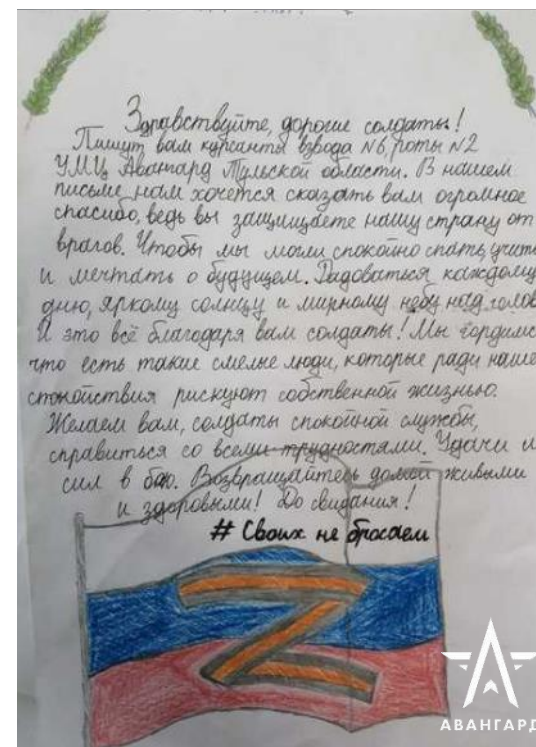 Здравствуйте, дорогие солдаты!
Пишут вам курсанты взвода №6, роты №2
УМЦ Авангард Тульской области. В нашем
письме нам хочется сказать вам огромное
спасибо, ведь вы защищаете нашу страну от
врагов. Чтобы мы могли спокойно спать, учить
и мечтать о будущем. Радоваться каждому
дню, яркому солнцу и мирному небу над голов
И это всё благодаря вам солдаты! Мы гордимс
что есть такие смелые люди, которые ради наше
спокойствия рискуют собственной жизнью.
Желаем вам, солдаты спокойной службы,
справиться со всеми трудностями. Удачи и
сил в бою. Возвращайтесь домой живыми
и здоровыми! До свидания!
# Своих не бросаем
Z
АВАНГАРД